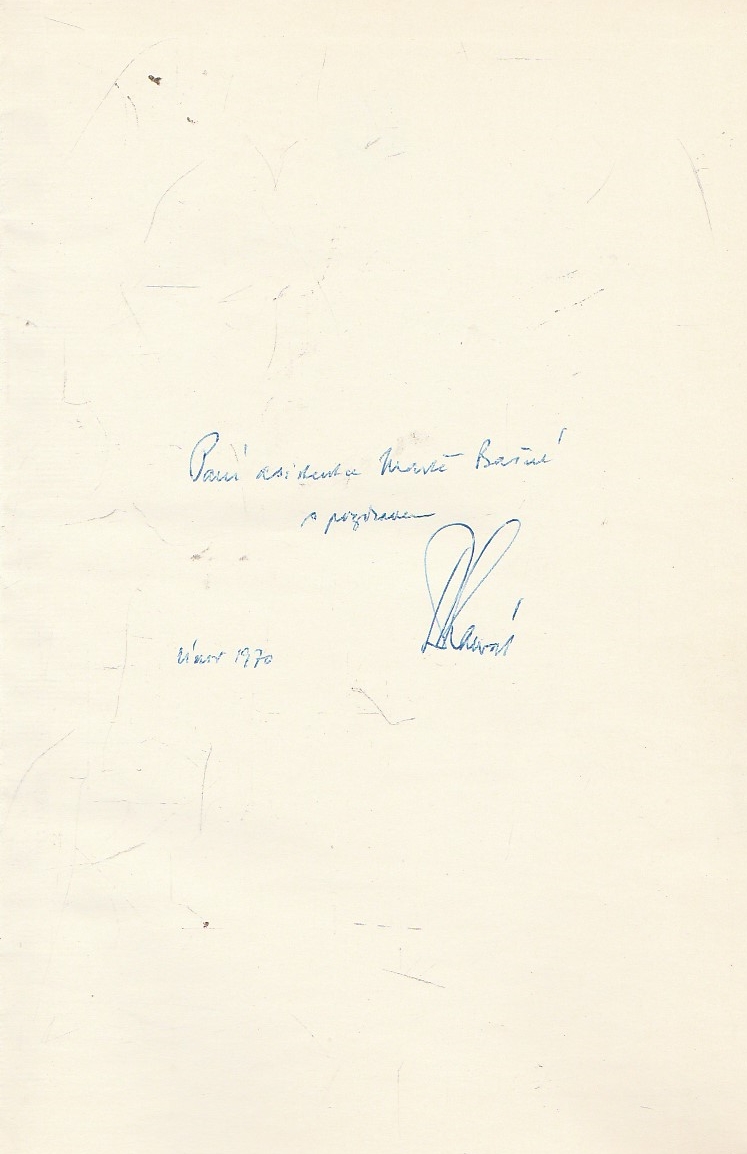 Paní asistentce Martě Bašné
s pozdravem
únor 1970